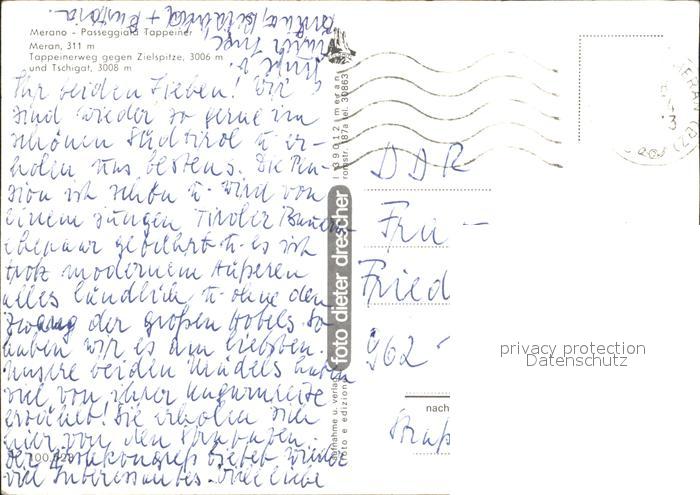 Merano - Passeggiata Tappeiner
Meran, 311 m
Tappeinerweg gegen Zielspitze, 3006 m
und Tschigat, 3008 m
Ihr beiden Lieben! Wir
sind wieder so gerne im
schönen Südtirol u. er-
holen uns bestens. Die Pen-
sion ist schön u. wird von
einem jungen Tiroler Bauern
ehepaar geführt u. es ist
trotz modernem Äußeren
alles ländlich u. ohne den
Zwang der großen Hotels. So
haben wir es am liebsten.
Unsere beiden Mädels haben
viel von ihrer Ungarnreise
erzählt! Sie erholen sich
hier von den
Der kongreß bietet wieder
viel Interessantes. Viele liebe
foto dieter drescher
39012 meran
DDR
Frau
Fried
962
nach
Straß
privacy protection
Datenschutz